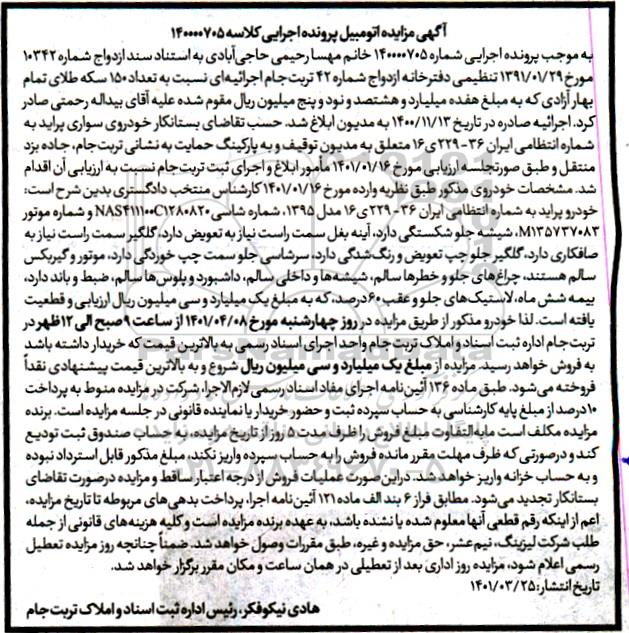 آگهی مزایده اتومبیل پرونده اجرایی کلاسه ۱۴۰۰۰۰۷۰۵
به موجب پرونده اجرایی شماره ۱۴۰۰۰۰۷۰۵ خانم مهسا رحیمی حاجی‌آبادی به استناد سند ازدواج شماره ۱۰۳۴۲
مورخ ۱۳۹۱/۰۱/۲۹ تنظیمی دفترخانه ازدواج شماره ۴۲ تربت‌جام اجرائیه‌ای نسبت به تعداد ۱۵۰ سکه طلای تمام
بهار آزادی که به مبلغ هفده میلیارد و هشتصد و نود و پنج میلیون ریال مقوم شده علیه آقای بیداله رحمتی صادر
کرد. اجرائیه صادره در تاریخ ۱۴۰۰/۱۱/۱۳ به مدیون ابلاغ شد. حسب تقاضای بستانکار خودروی سواری پراید به
شماره انتظامی ایران ۳۶-۲۲۹ی۱۶ متعلق به مدیون توقیف و به پارکینگ حمایت به نشانی تربت‌جام، جاده یزد
منتقل و طبق صورتجلسه ارزیابی مورخ ۱۴۰۱/۰۱/۱۶ مامور ابلاغ و اجرای ثبت تربت‌جام نسبت به ارزیابی آن اقدام
شد. مشخصات خودروی مذکور طبق نظریه وارده مورخ ۱۴۰۱/۰۱/۱۶ کارشناس منتخب دادگستری بدین شرح است:
خودرو پراید به شماره انتظامی ایران ۳۶-۲۲۹ی۱۶ مدل ۱۳۹۵، شماره شاسی NAS۴۱۱۱۰۰C۱۲۸۰۸۲۰ و شماره موتور
M۱۳۵۷۳۷۰۸۳، شیشه جلو شکستگی دارد، آینه بغل سمت راست نیاز به تعویض دارد، گلگیر سمت راست نیاز به
صافکاری دارد، گلگیر جلو چپ تعویض و رنگ‌شدگی دارد، سرشاسی جلو سمت چپ خوردگی دارد، موتور و گیربکس
سالم هستند، چراغ‌های جلو و خطرها سالم، شیشه‌ها و داخلی سالم، داشبورد و پلوس‌ها سالم، ضبط و باند دارد،
بیمه شش ماه، لاستیک‌های جلو و عقب ۶۰درصد، که به مبلغ یک میلیارد و سی میلیون ریال ارزیابی و قطعیت
یافته است. لذا خودرو مذکور از طریق مزایده در روز چهارشنبه مورخ ۱۴۰۱/۰۴/۰۸ از ساعت ۹ صبح الی ۱۲ ظهر در
تربت‌جام اداره ثبت اسناد و املاک تربت‌جام واحد اجرای اسناد رسمی به بالاترین قیمت که خریدار داشته باشد
به فروش خواهد رسید. مزایده از مبلغ یک میلیارد و سی میلیون ریال شروع و به بالاترین قیمت پیشنهادی نقداً
فروخته می‌شود. طبق ماده ۱۳۶ آئین‌نامه اجرای مفاد اسناد رسمی لازم‌الاجرا، شرکت در مزایده منوط به پرداخت
۱۰درصد از مبلغ پایه کارشناسی به حساب سپرده ثبت و حضور خریدار یا نماینده قانونی در جلسه مزایده است. برنده
مزایده مکلف است مابه‌التفاوت مبلغ فروش را ظرف مدت ۵ روز از تاریخ مزایده، به حساب صندوق ثبت تودیع
کند و درصورتی که ظرف مهلت مقرر مانده فروش را به حساب سپرده واریز نکند، مبلغ مذکور قابل استرداد نبوده
و به حساب خزانه واریز خواهد شد. دراین صورت عملیات فروش از درجه اعتبار ساقط و مزایده درصورت تقاضای
بستانکار تجدید می‌شود. مطابق فراز ۶ بند الف ماده ۱۲۱ آئین‌نامه اجرا، پرداخت بدهی‌های مربوطه تا تاریخ مزایده،
اعم از اینکه رقم قطعی آنها معلوم شده یا نشده باشد، به عهده برنده مزایده است و کلیه هزینه‌های قانونی از جمله
طلب شرکت لیزینگ، نیم‌عشر، حق مزایده و غیره، طبق مقررات وصول خواهد شد. ضمناً چنانچه روز مزایده تعطیل
رسمی اعلام شود، مزایده روز اداری بعد از تعطیلی در همان ساعت و مکان مقرر برگزار خواهد شد.
تاریخ انتشار: ۱۴۰۱/۰۳/۲۵
هادی نیکوفکر، رئیس اداره ثبت اسناد و املاک تربت جام